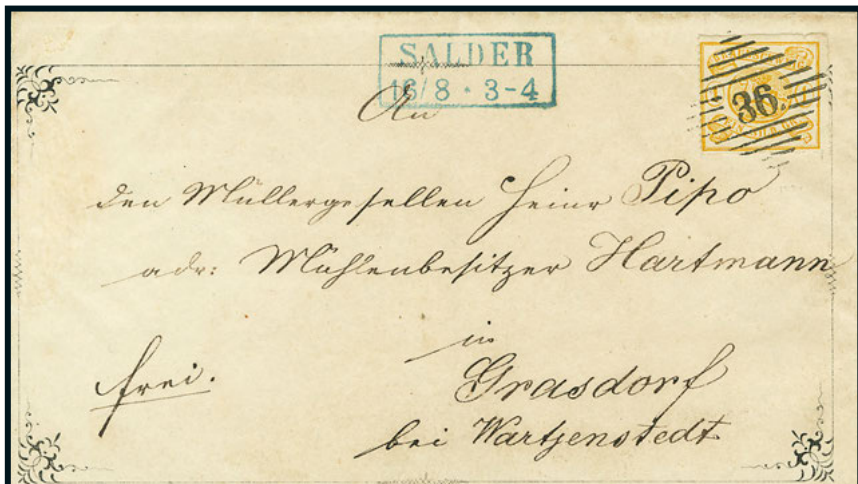 SALDER
16/8 · 3-4
36.
An
den Müllergesellen Heinr Pipo
adr: Mühlenbesitzer Hartmann
in
frei.
Grasdorf
bei Wartjenstedt